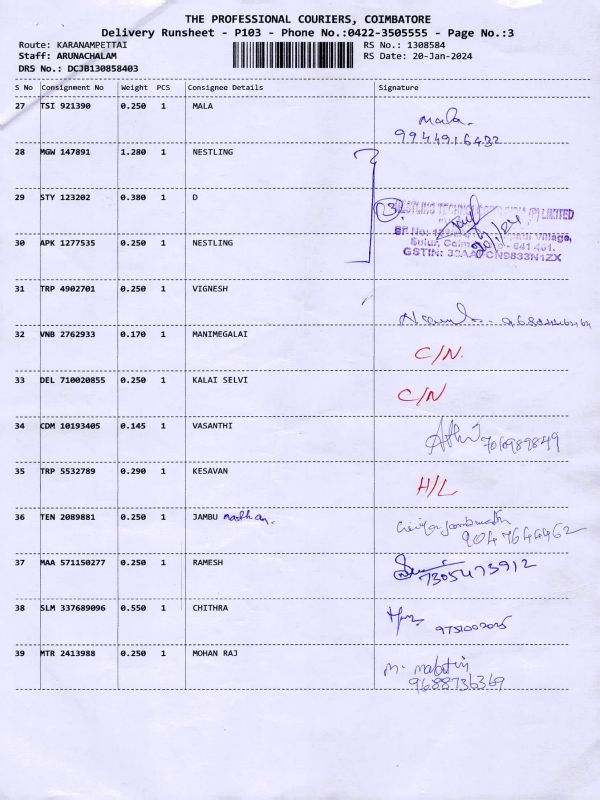 THE PROFESSIONAL COURIERS, COIMBATORE
Delivery Runsheet - P103 - Phone No.:0422-3505555 - Page No.:3
Route: KARANAMPETTAI RS No.: 1308584
Staff: ARUNACHALAM RS Date: 20-Jan-2024
DRS No.: DCJB130858403
S No Consignment No Weight PCS Consignee Details Signature
27 TSI 921390 0.250 1 MALA
Mala.
9944916432
28 MGW 147891 1.280 1 NESTLING
29 STY 123202 0.380 1 D
3
NESTLING TECHNOLOGIES INDIA (P) LIMITED
Village,
30 APK 1277535 0.250 1 NESTLING
Sulur, 641 401.
20/1/24
31 TRP 4902701 0.250 1 VIGNESH
32 VNB 2762933 0.170 1 MANIMEGALAI
C/N.
33 DEL 710020855 0.250 1 KALAI SELVI
C/N
34 CDM 10193405 0.145 1 VASANTHI
35 TRP 5532789 0.290 1 KESAVAN
H/L
36 TEN 2089881 0.250 1 JAMBU nadhan.
9047644462
37 MAA 571150277 0.250 1 RAMESH
7305473912
38 SLM 337689096 0.550 1 CHITHRA
39 MTR 2413988 0.250 1 MOHAN RAJ
9688736369